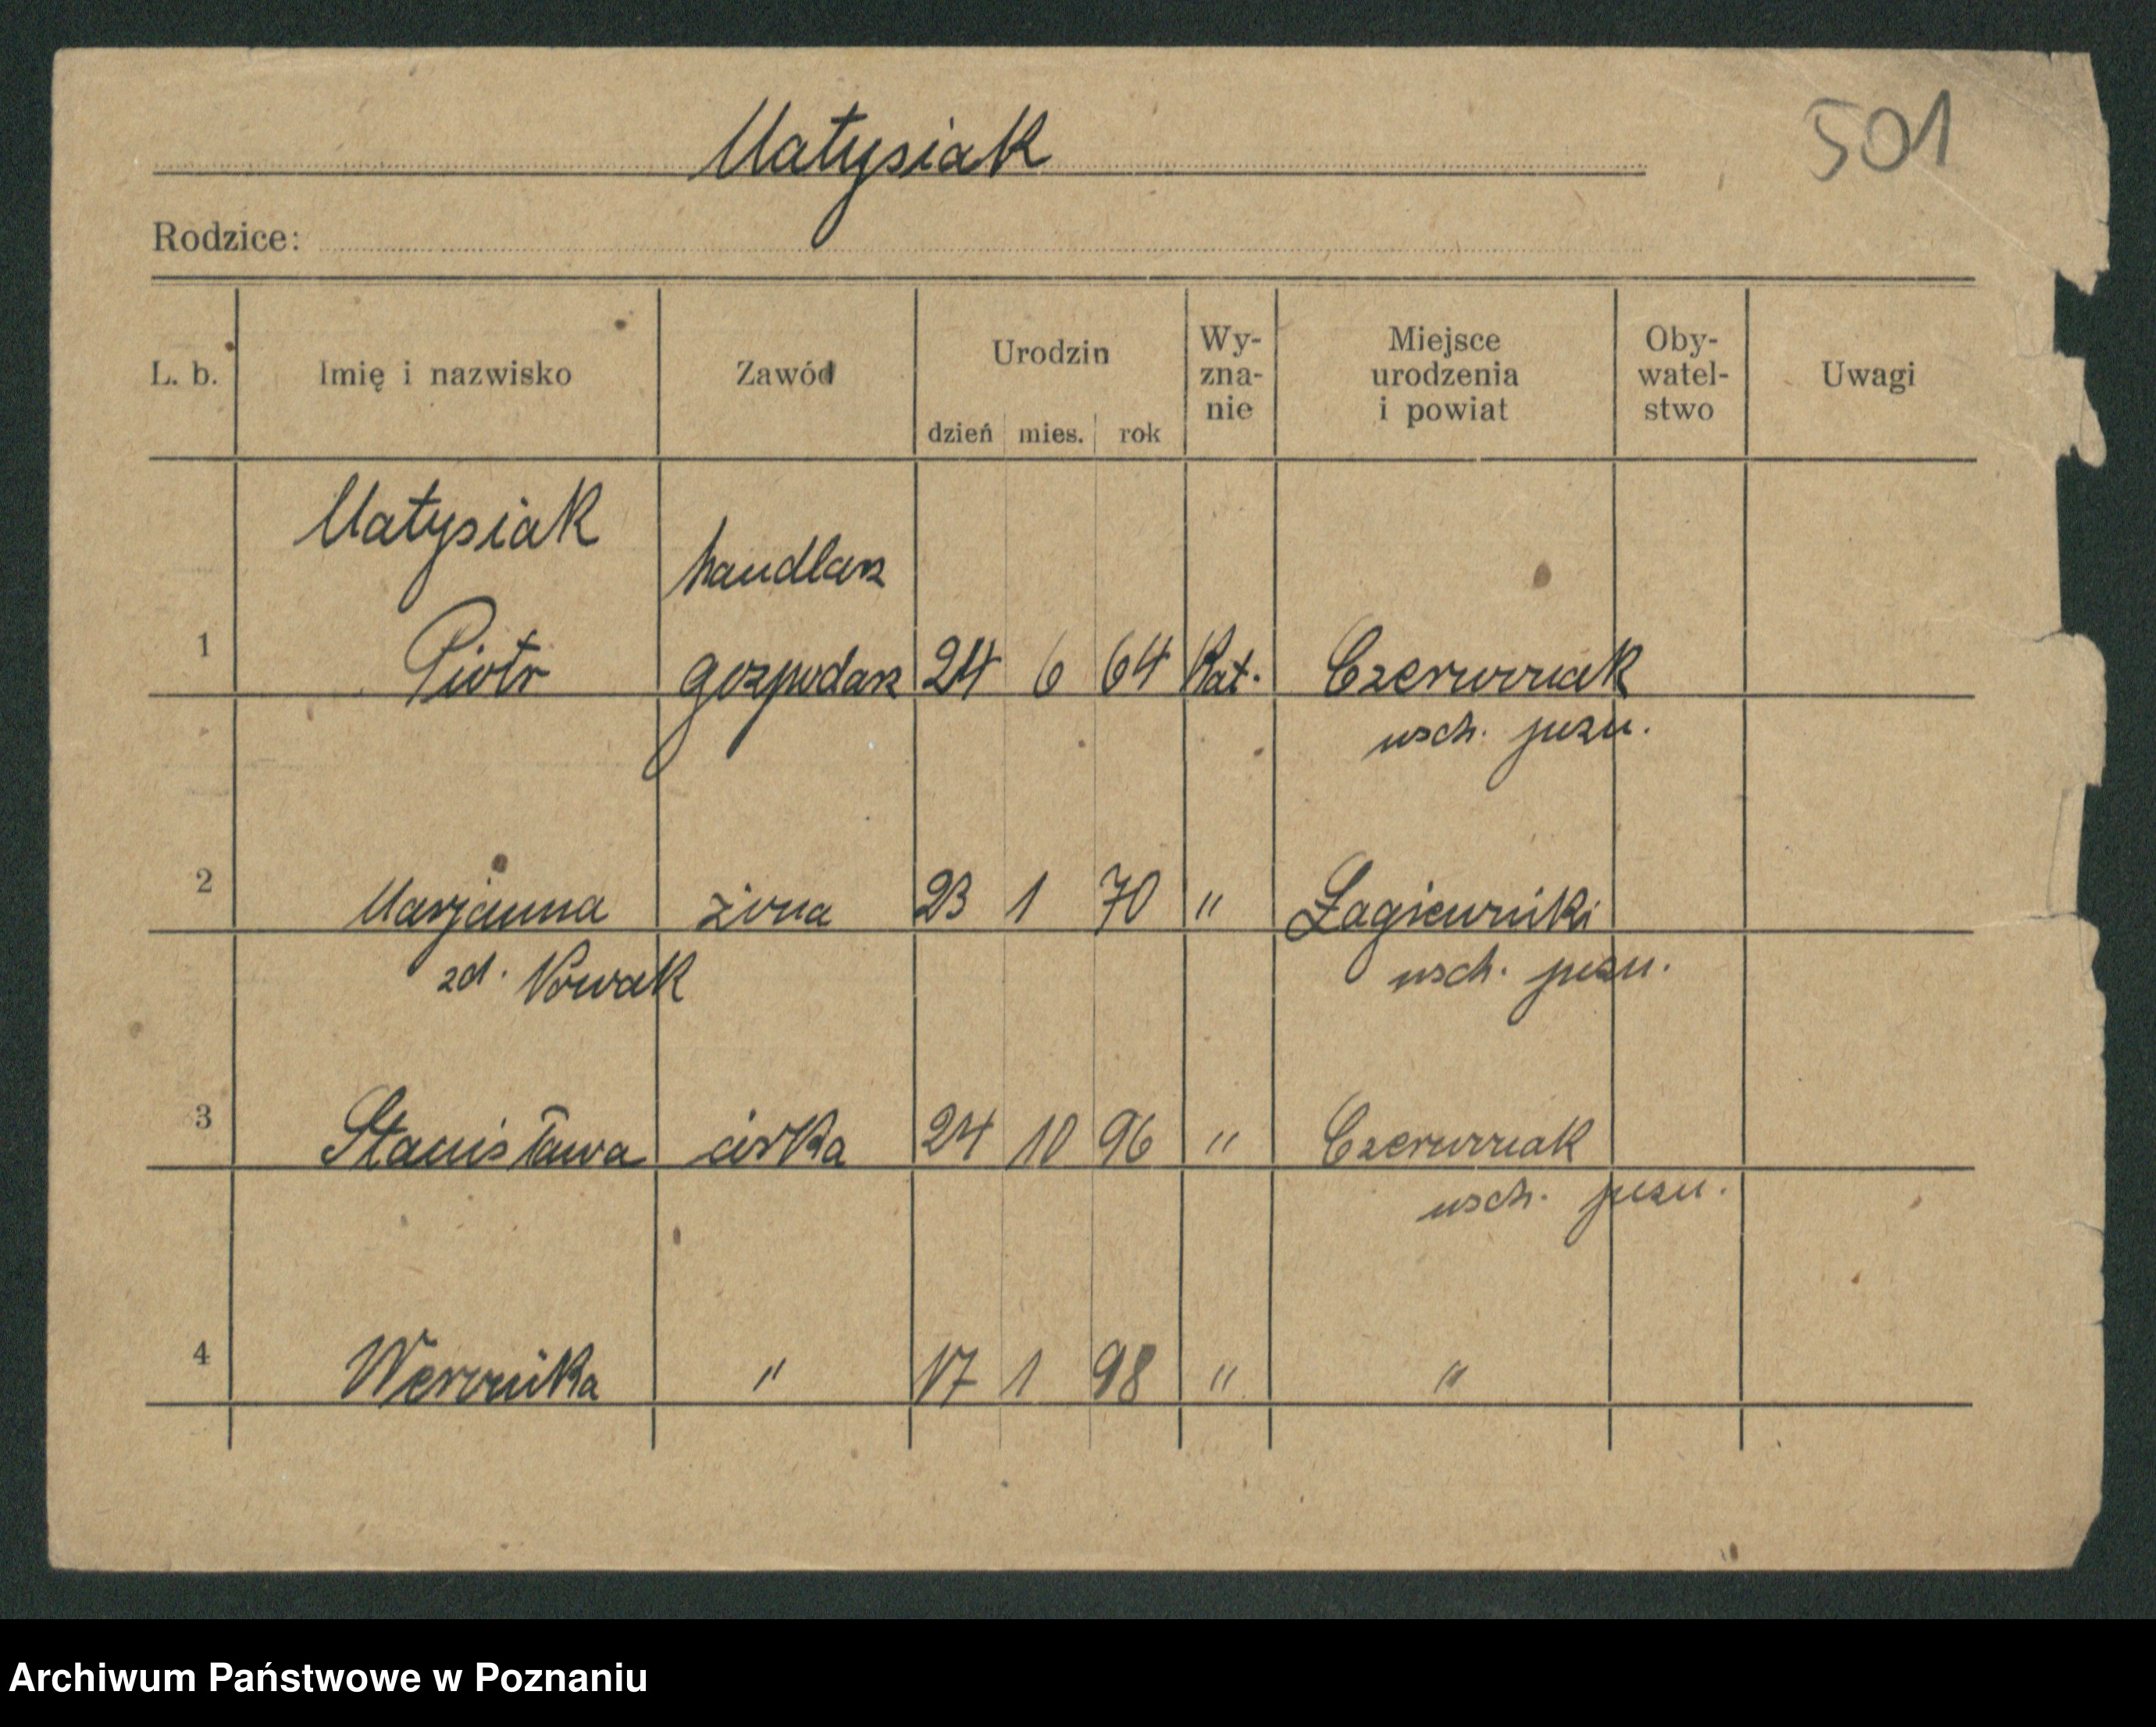 Matysiak
501
Rodzice:
L. b. Imię i nazwisko Zawód Urodzin dzień mies. rok Wy-zna-nie Miejsce urodzenia i powiat Oby-watel-stwo Uwagi
Matysiak handlarz
1 Piotr gospodarz 24 6 64 Kat. Czerwonak
wsch. pozn.
2 Marjanna żona 23 1 70 " Łagiewniki
zd. Nowak wsch. pozn.
3 Stanisława córka 24 10 96 " Czerwonak
wsch. pozn.
4 Weronika " 17 1 98 " "
Archiwum Państwowe w Poznaniu